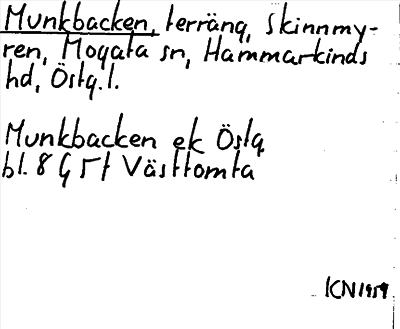 Munkbacken, terräng, Skinnmy-
ren, Mogata sn, Hammarkinds
hd, Östg.l.
Munkbacken ek Östg.
bl. 8 G 5f Västtomta
KN 1959